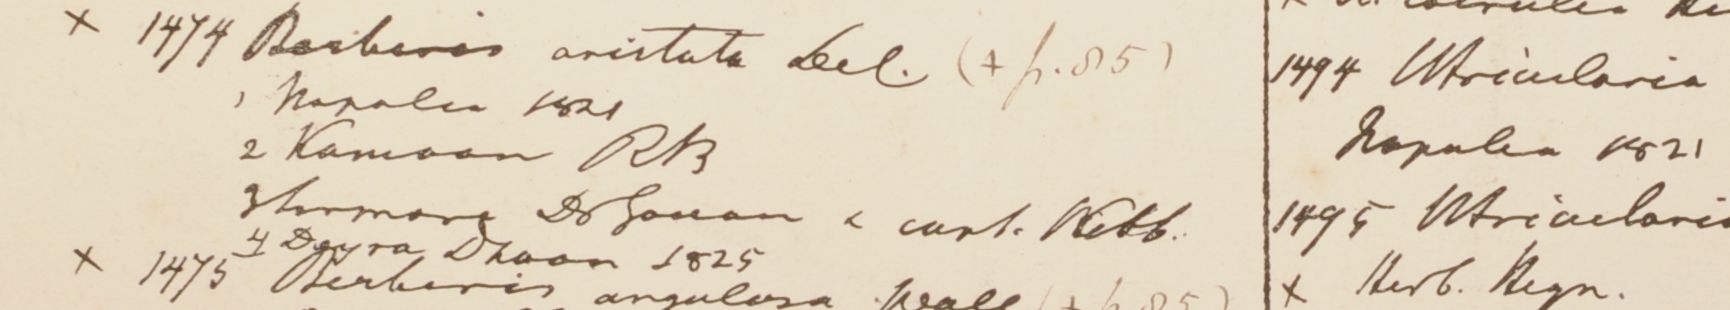 × 1474 Berberis aristata Del. (+ p. 85)
1 Napalia 1821
2 Kamaon RB
3 Sirmore Dr Govan & capt. Webb.
4 Deyra Dhoon 1825
× 1475 Berberis angulosa Wall (+ p 85)
1494 Utricularia
Napalia 1821
1495 Utricularia
× Herb. Heyn.